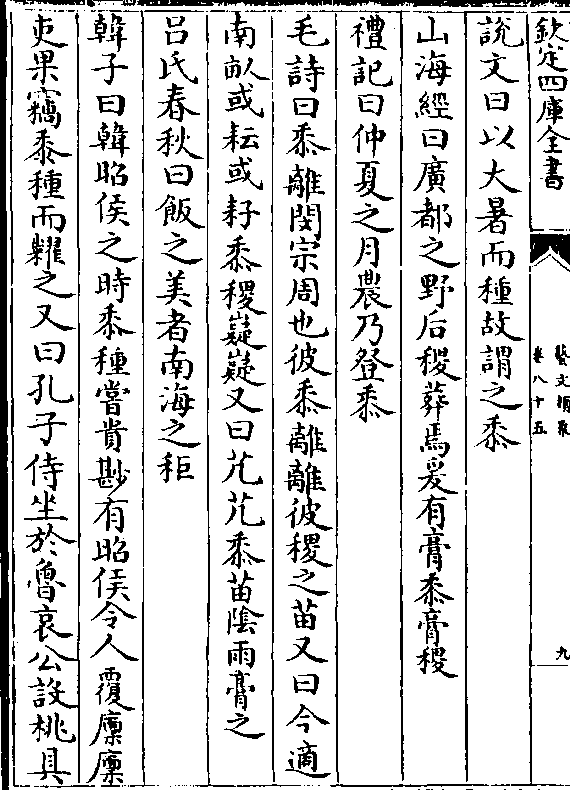 欽定四庫全書
藝文類聚
卷八十五
九
說文曰以大暑而種故謂之黍
山海經曰廣都之野后稷葬焉爰有膏黍膏稷
禮記曰仲夏之月農乃登黍
毛詩曰黍離閔宗周也彼黍離離彼稷之苗又曰今適
南畝或耘或耔黍稷嶷嶷又曰芃芃黍苗陰雨膏之
呂氏春秋曰飯之美者南海之秬
韓子曰韓昭侯之時黍種嘗貴尠有昭侯令人覆廩廩
吏果竊黍種而糶之又曰孔子侍坐於魯哀公設桃具